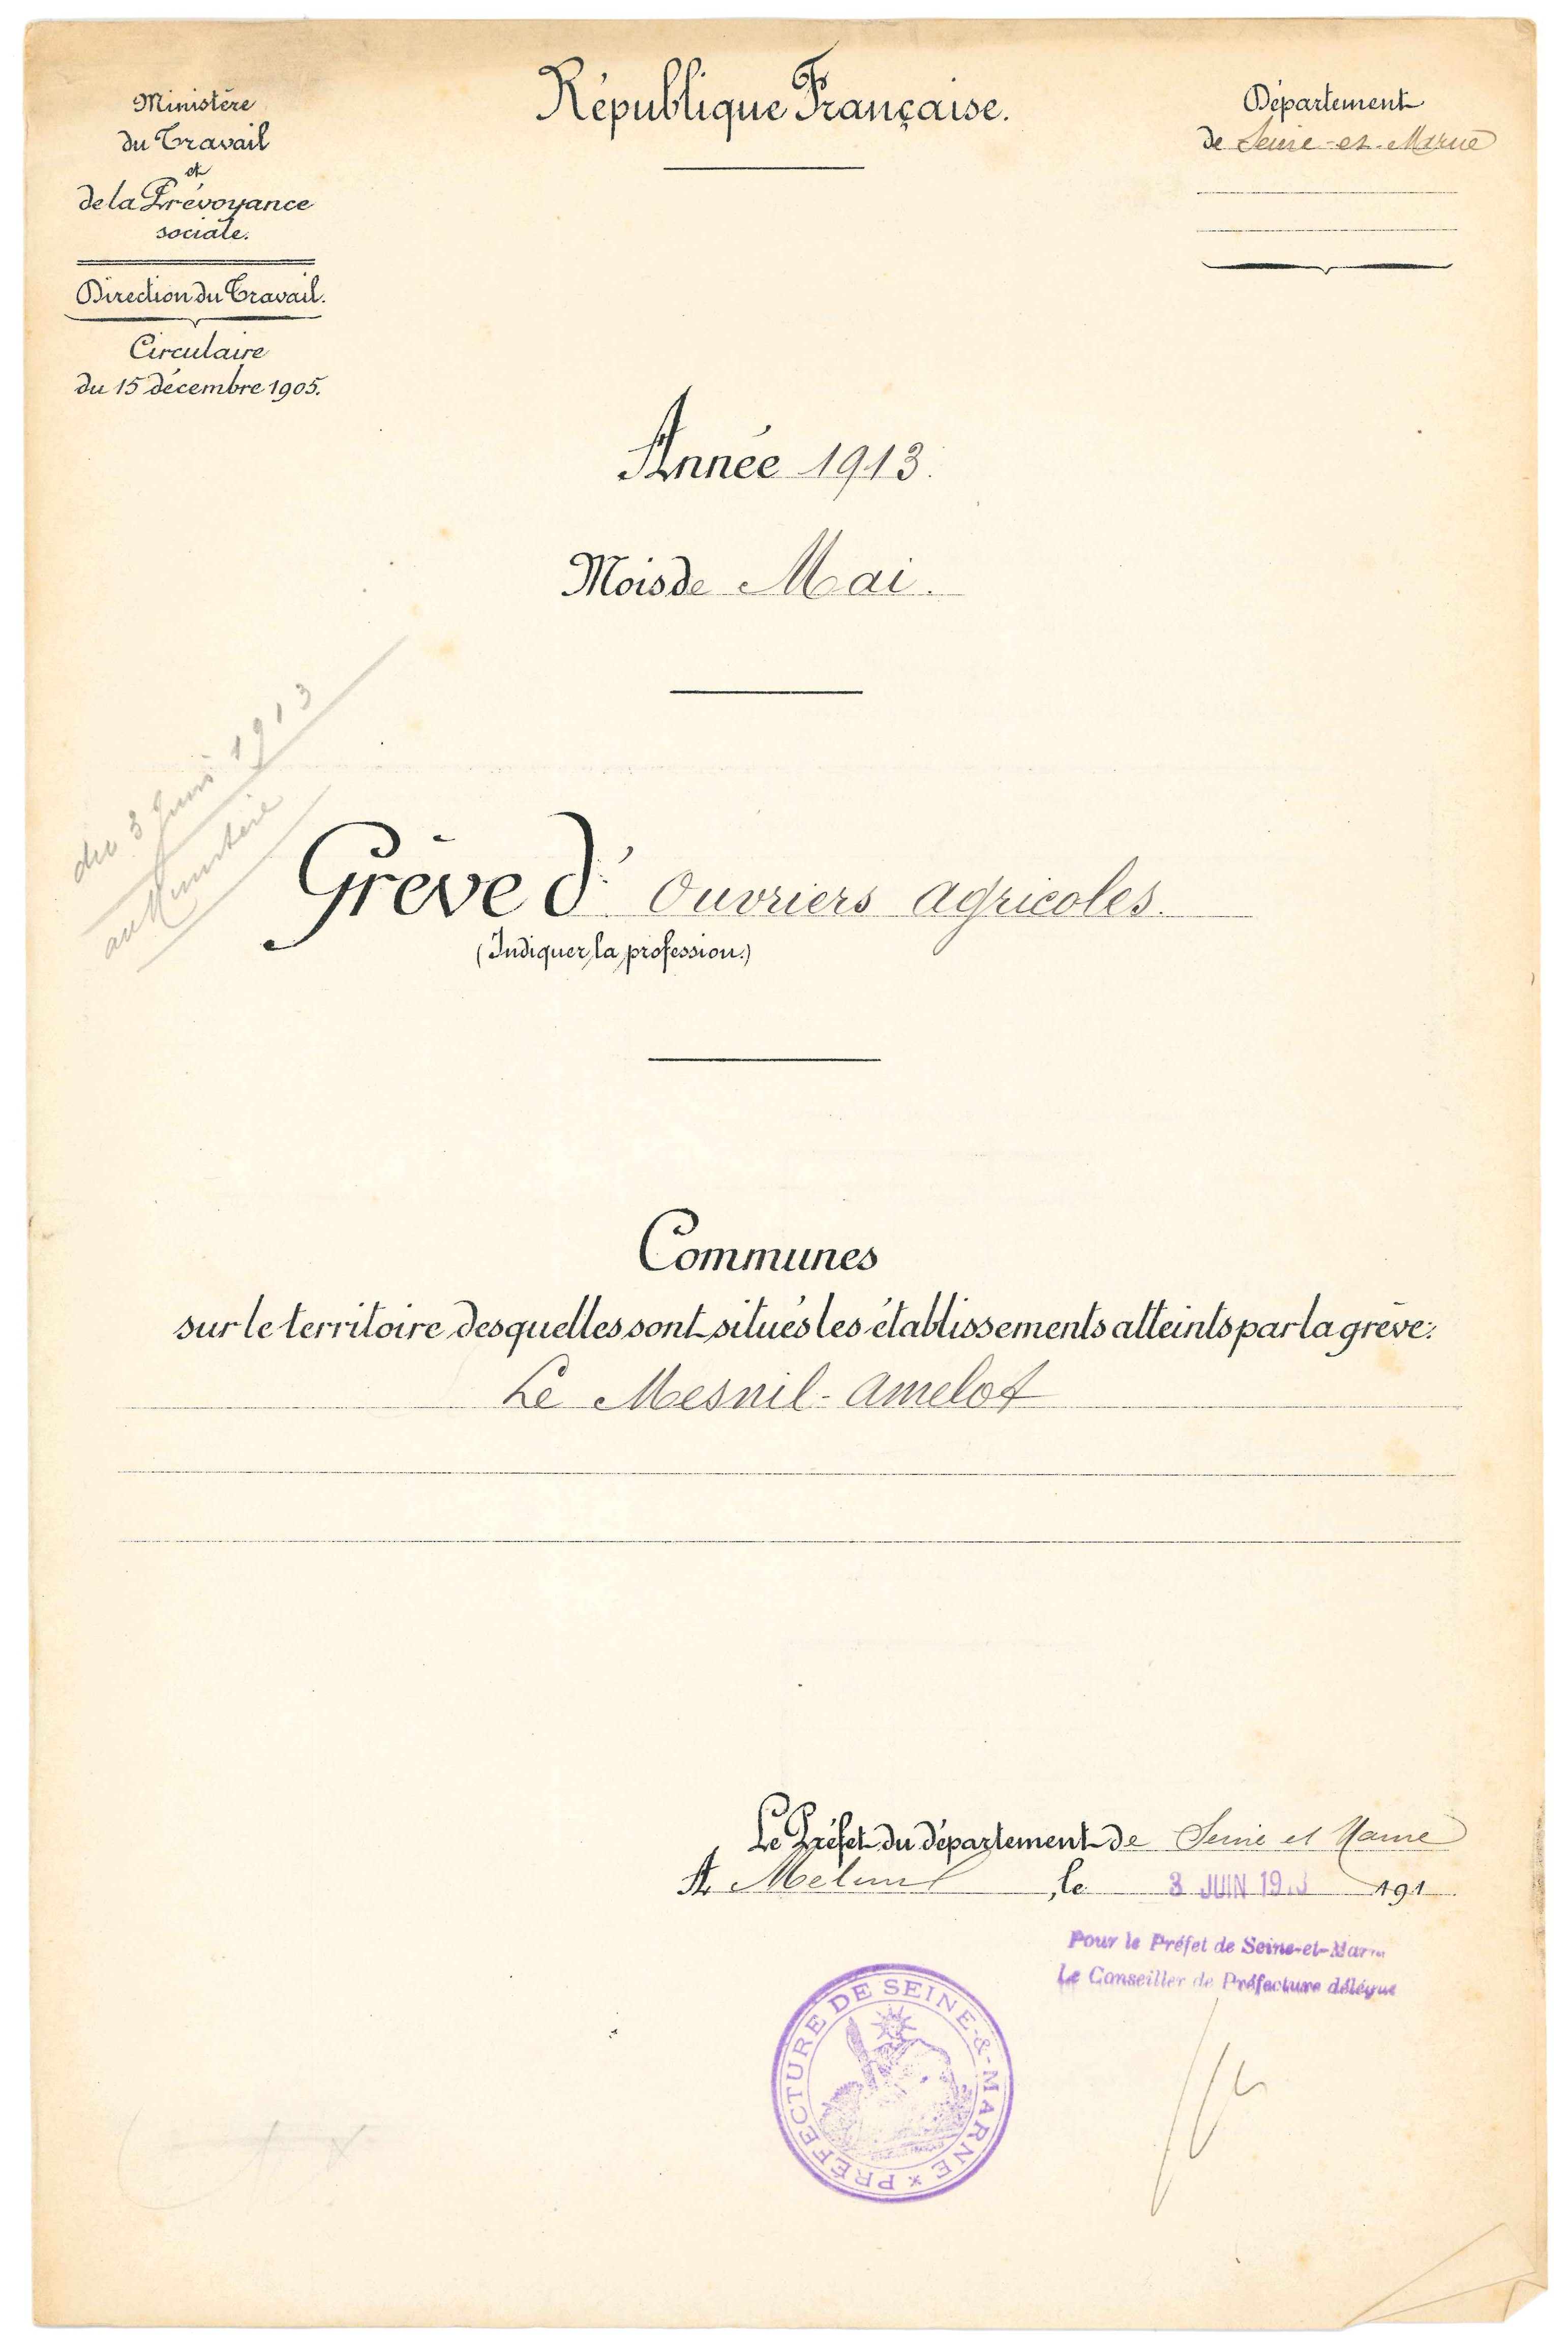 Ministère
du Travail
et
de la Prévoyance
sociale.
Direction du Travail.
Circulaire
du 15 décembre 1905.
République Française.
Département
de Seine-et-Marne
Année 1913.
Mois de Mai.
du 3 Juin 1913
au Ministère
Grève d' ouvriers agricoles.
(Indiquer la profession.)
Communes
sur le territoire desquelles sont situés les établissements atteints par la grève:
Le Mesnil-Amelot
Le Préfet du département de Seine et Marne
A Melun, le 3 JUIN 1913 191
Pour le Préfet de Seine-et-Marne
Le Conseiller de Préfecture délégué
PRÉFECTURE DE SEINE-&-MARNE